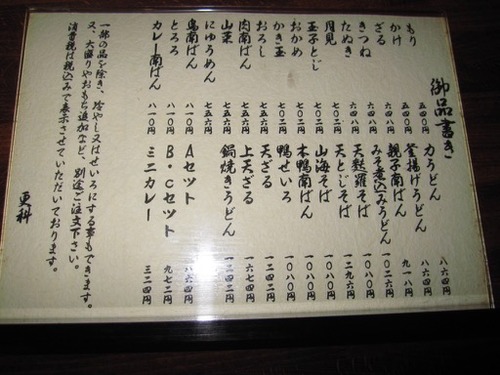 御品書き
もり 五四〇円
かけ 五四〇円
ざる 六四八円
きつね 六四八円
たぬき 六四八円
月見
玉子とじ 七〇二円
おかめ 七〇二円
かき玉 七〇二円
おろし 七五六円
肉南ばん 七五六円
山菜 七五六円
にゅうめん 七五六円
鳥南ばん 八一〇円
とろろ 八一〇円
カレー南ばん 八一〇円
力うどん 八六四円
釜揚げうどん 八六四円
親子南ばん 九一八円
みそ煮込みうどん 一〇二六円
天麩羅そば 一〇八〇円
天とじそば 一二九六円
山海そば 一〇八〇円
本鴨南ばん 一〇八〇円
鴨せいろ 一〇八〇円
天ざる 一二四二円
上天ざる 一六七四円
鍋焼きうどん 一二四二円
Aセット 八六四円
B・Cセット 九七二円
ミニカレー 三二四円
一部の品を除き、冷やし又はせいろにする事もできます。
又、大盛りやおもち追加など、別途ご注文下さい。
消費税は税込みで表示させていただいております。
更科